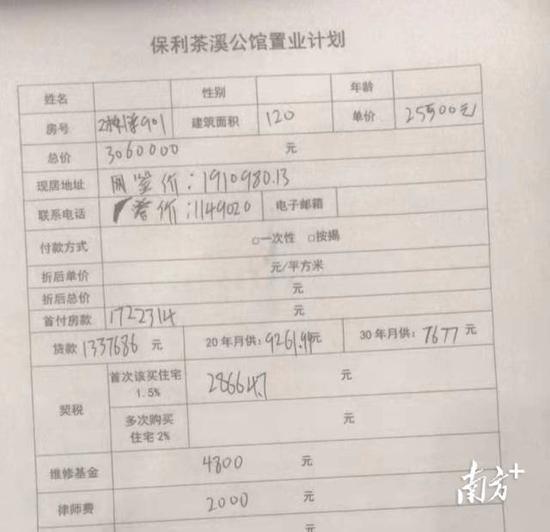 保利茶溪公馆置业计划
姓名 性别 年龄
房号 2栋 901 建筑面积 120 单价 25500元
总价 3060000 元
现居地址 网签价:1910980.13
联系电话 价:1149020 电子邮箱
付款方式 □一次性 □按揭
折后单价 元/平方米
折后总价 元
首付房款 1722314 元
贷款 1337686 元 20年月供:9261.94元 30年月供:7677元
契税 首次该买住宅 1.5% 28664.7 元
多次购买 住宅2% 元
维修基金 4800 元
律师费 2000 元
南方+